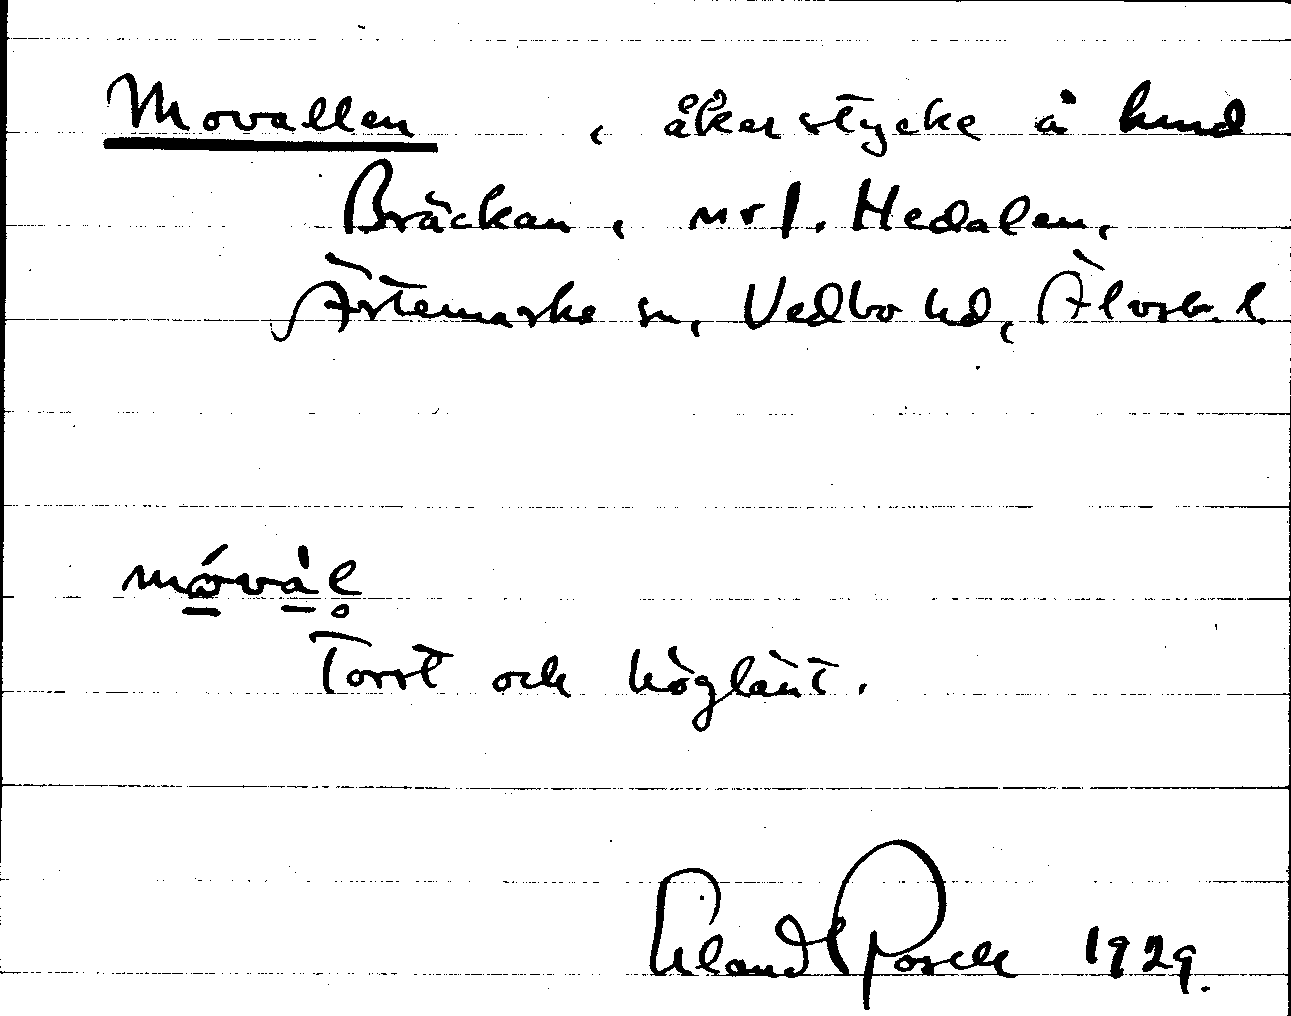 Movallen , åkerstycke å hmd
Bräckan, nr 1. Hedalen,
Ärtemarke sn, Vedbo hd, Älvsb. l.
móvàl̥
Torrt och höglänt.
Rosell 1929.